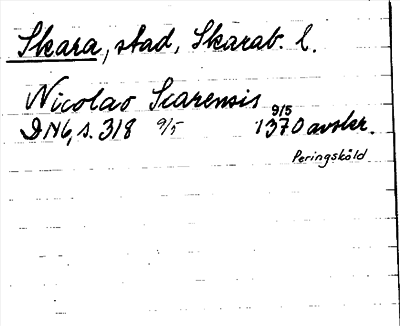 Skara, stad, Skarab. l.
Nicolao Scarensis
DN6, s. 318 9/5 9/5 1370 avskr.
Peringsköld